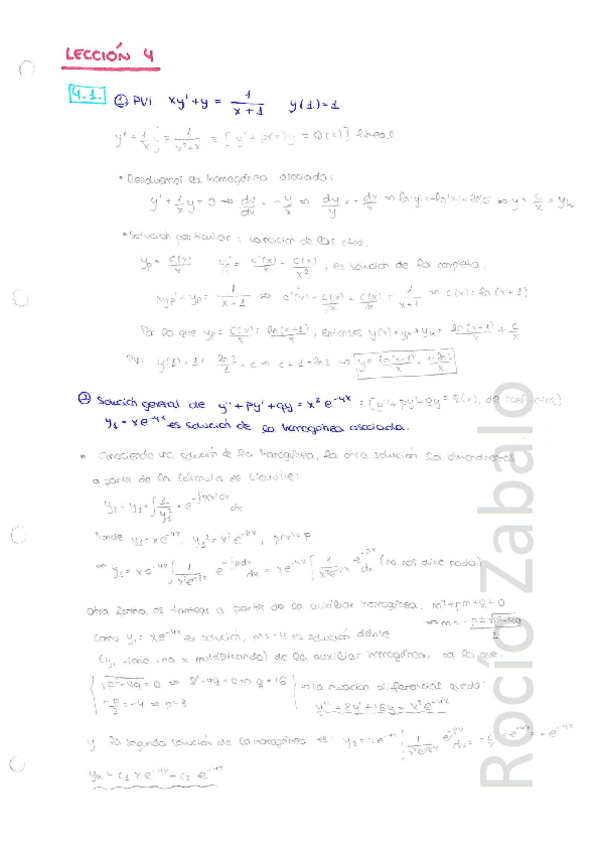 LECCIÓN 4
4.1. ① PVI xy' + y = 1/(x+1) y(1)=1
y' + (1/x)y = 1/(x²+x) = [y' + p(x)y = Q(x)] lineal.
• Resolvemos la homogénea asociada:
y' + (1/x)y = 0 ⇒ dy/dx = -y/x ⇒ dy/y = -dx/x ⇒ y = c/x = yₕ
• Solución particular: variación de las ctes.
yₚ = c(x)/x yₚ' = c'(x)/x - c(x)/x², es solución de la completa.
xyₚ' + yₚ = ⇒ c'(x) - c(x)/x + c(x)/x = 1/(x+1) ⇒ c(x) = ln(x+1)
Por lo que yₚ = c(x)/x = ln(x+1)/x, entonces y(x) = yₚ + yₕ = ln(x+1)/x + c/x
PVI y(1) = 1 = ln2/1 + c ⇒ ⇒ y = ln(x+1)/x + (1-ln2)/x
② Solución general de y'' + py' + qy = x² e^(-4x) = [y'' + py' + qy = R(x), de]
y₁ = xe^(-4x) es solución de la homogénea asociada.
• Conociendo una solución de la homogénea, la otra solución la obtendremos
a partir de la fórmula de Liouville:
y₂ = y₁ ∫ 1/y₁² · e^(-∫p(x)dx) dx
Donde y₁ = xe^(-4x), y₁² = x²e^(-8x), p(x) = p
⇒ y₂ = xe^(-4x) ∫ 1/(x²e^(-8x)) e^(-∫pdx) dx = xe^(-4x) ∫ 1/(x²e^(-8x)) e^(-px) dx (no nos dice nada)
Otra forma es a partir de la auxiliar homogénea. m² + pm + q = 0
⇒ m = (-p ± √(p²-4q))/2
Como y₁ = xe^(-4x) es solución, m = -4 es solución doble
(y₁ tiene una x multiplicando) de la auxiliar homogénea, por lo que:
√(p²-4q) = 0 ⇒ 8²-4q = 0 ⇒ q = 16
-p/2 = -4 ⇒ p = 8
⇒ la ecuación diferencial queda:
y'' + 8y' + 16y = x²e^(-4x)
y la segunda solución de la homogénea es: y₂ = xe^(-4x) ∫ 1/(x²e^(-8x)) e^(-8x) dx = = -e^(-4x)
yₕ = c₁ x e^(-4x) - c₂ e^(-4x)
Rocío Zabalo